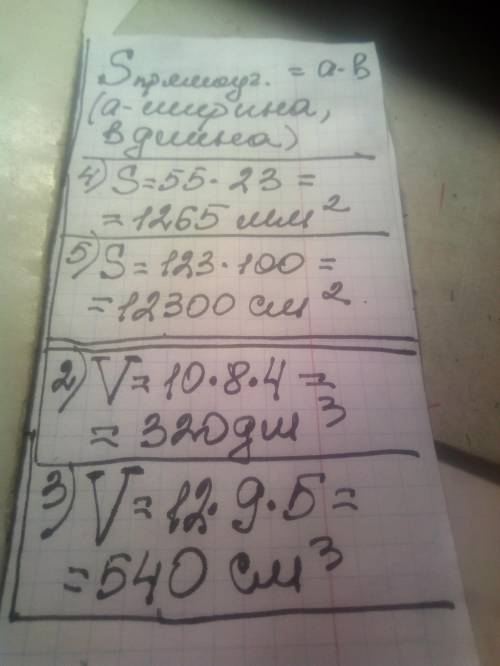 Sпрямоуг. = a·в
(а-ширина,
в длина)
4) S=55·23=
=1265 мм²
5) S=123·100=
=12300 см²
2) V=10·8·4=
=320дм³
3) V=12·9·5=
=540 см³